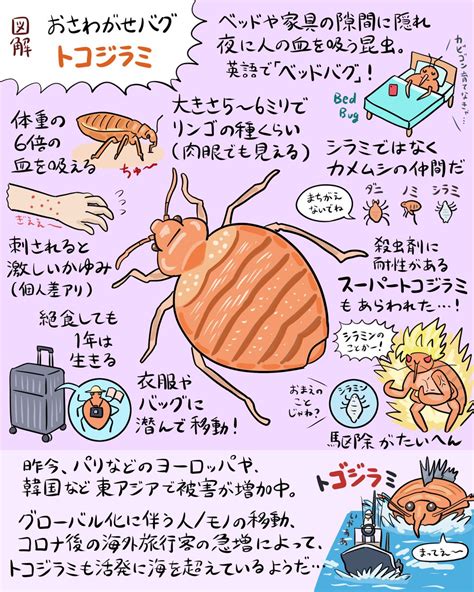 図解
おさわがせバグ
トコジラミ
ベッドや家具の隙間に隠れ
夜に人の血を吸う昆虫。
英語で「ベッドバグ」!
Bed
Bug
体重の
6倍の
血を吸える
ちゅ〜
大きさ5〜6ミリで
リンゴの種くらい
(肉眼でも見える)
シラミではなく
カメムシの仲間だ
まちがえ
ないでね
ダニ
ノミ
シラミ
ぎええー
刺されると
激しいかゆみ
(個人差アリ)
殺虫剤に
耐性がある
スーパートコジラミ
もあらわれた…!
絶食しても
1年は
生きる
衣服や
バッグに
潜んで移動!
シラミンの
ことかーっ!
おまえの
ことじゃね?
シラミン
駆除がたいへん
昨今、パリなどのヨーロッパや、
韓国など東アジアで被害が増加中。
グローバル化に伴う人/モノの移動、
コロナ後の海外旅行客の急増によって、
トコジラミも活発に海を超えているようだ…
トゴジラミ
まってぇ〜